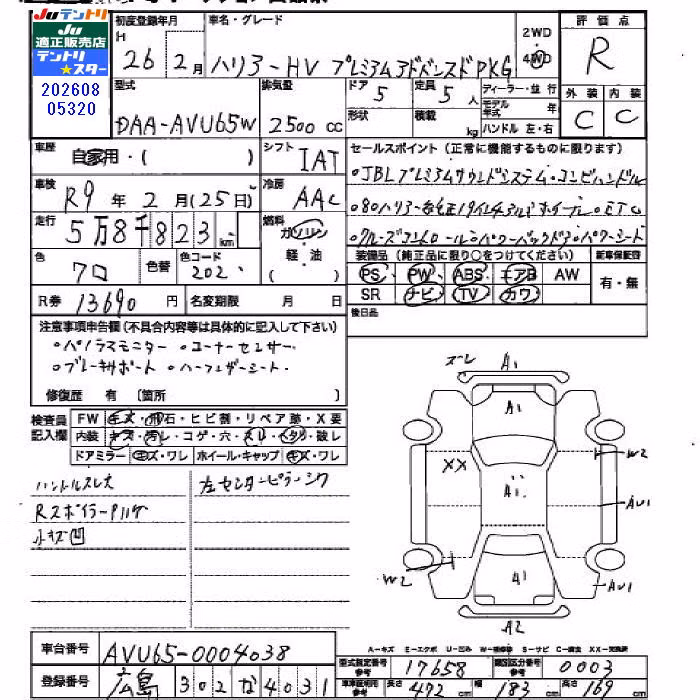 Juテントリ
Ju
適正販売店
テントリ
★スター
202608
05320
初度登録年月 車名・グレード 2WD 4WD 評価点
H 26年 2月 ハリアーHV プレミアムアドバンスドPKG R
型式 排気量 ドア 5 定員 5人 ディーラー・並行 外装 内装
DAA-AVU65W 2500cc 形状 積載 kg モデル年式 年 ハンドル 左・右 C C
車歴 自家用・( ) シフト IAT セールスポイント(正常に機能するものに限ります)
車検 R9年2月(25日) 冷房 AAC
・JBLプレミアムサウンドシステム・コンビハンドル
走行 5万8千823km 燃料 ガソリン・軽油( )
・クルーズコントロール・パワーバックドア・パワーシート
色 クロ 色替 色コード 202
装備品(純正品に限り○をつけてください) 新車保証書
PS PW ABS エアB AW 有・無
SR ナビ TV カワ
R券 13690円 名変期限 月 日 後日品
注意事項申告欄(不具合内容等は具体的に記入して下さい)
・パノラマモニター ・コーナーセンサー
・ブレーキサポート ・ハーフレザーシート
修復歴 有 [箇所 ]
検査員記入欄
FW キズ・飛石・ヒビ割・リペア跡・X要
内装 キズ・汚レ・コゲ・穴・スレ・ヘタリ・破レ
ドアミラー キズ・ワレ ホイール・キャップ キズ・ワレ
ハンドルスレ大 左センターピラーシワ
Rスポイラー
小キズ凹
ズレ A1
A1
XX W2
A1
AU1
W2 A1 AU1
A2
車台番号 AVU65-0004038
A-キズ E-エクボ U-凹み W-補修跡 S-サビ C-腐食 XX-交換済
型式指定番号参考 17658 類別区分番号参考 0003
登録番号 広島 302 な 4031
車車証用参考 長さ 472cm 幅 183cm 高さ 169cm